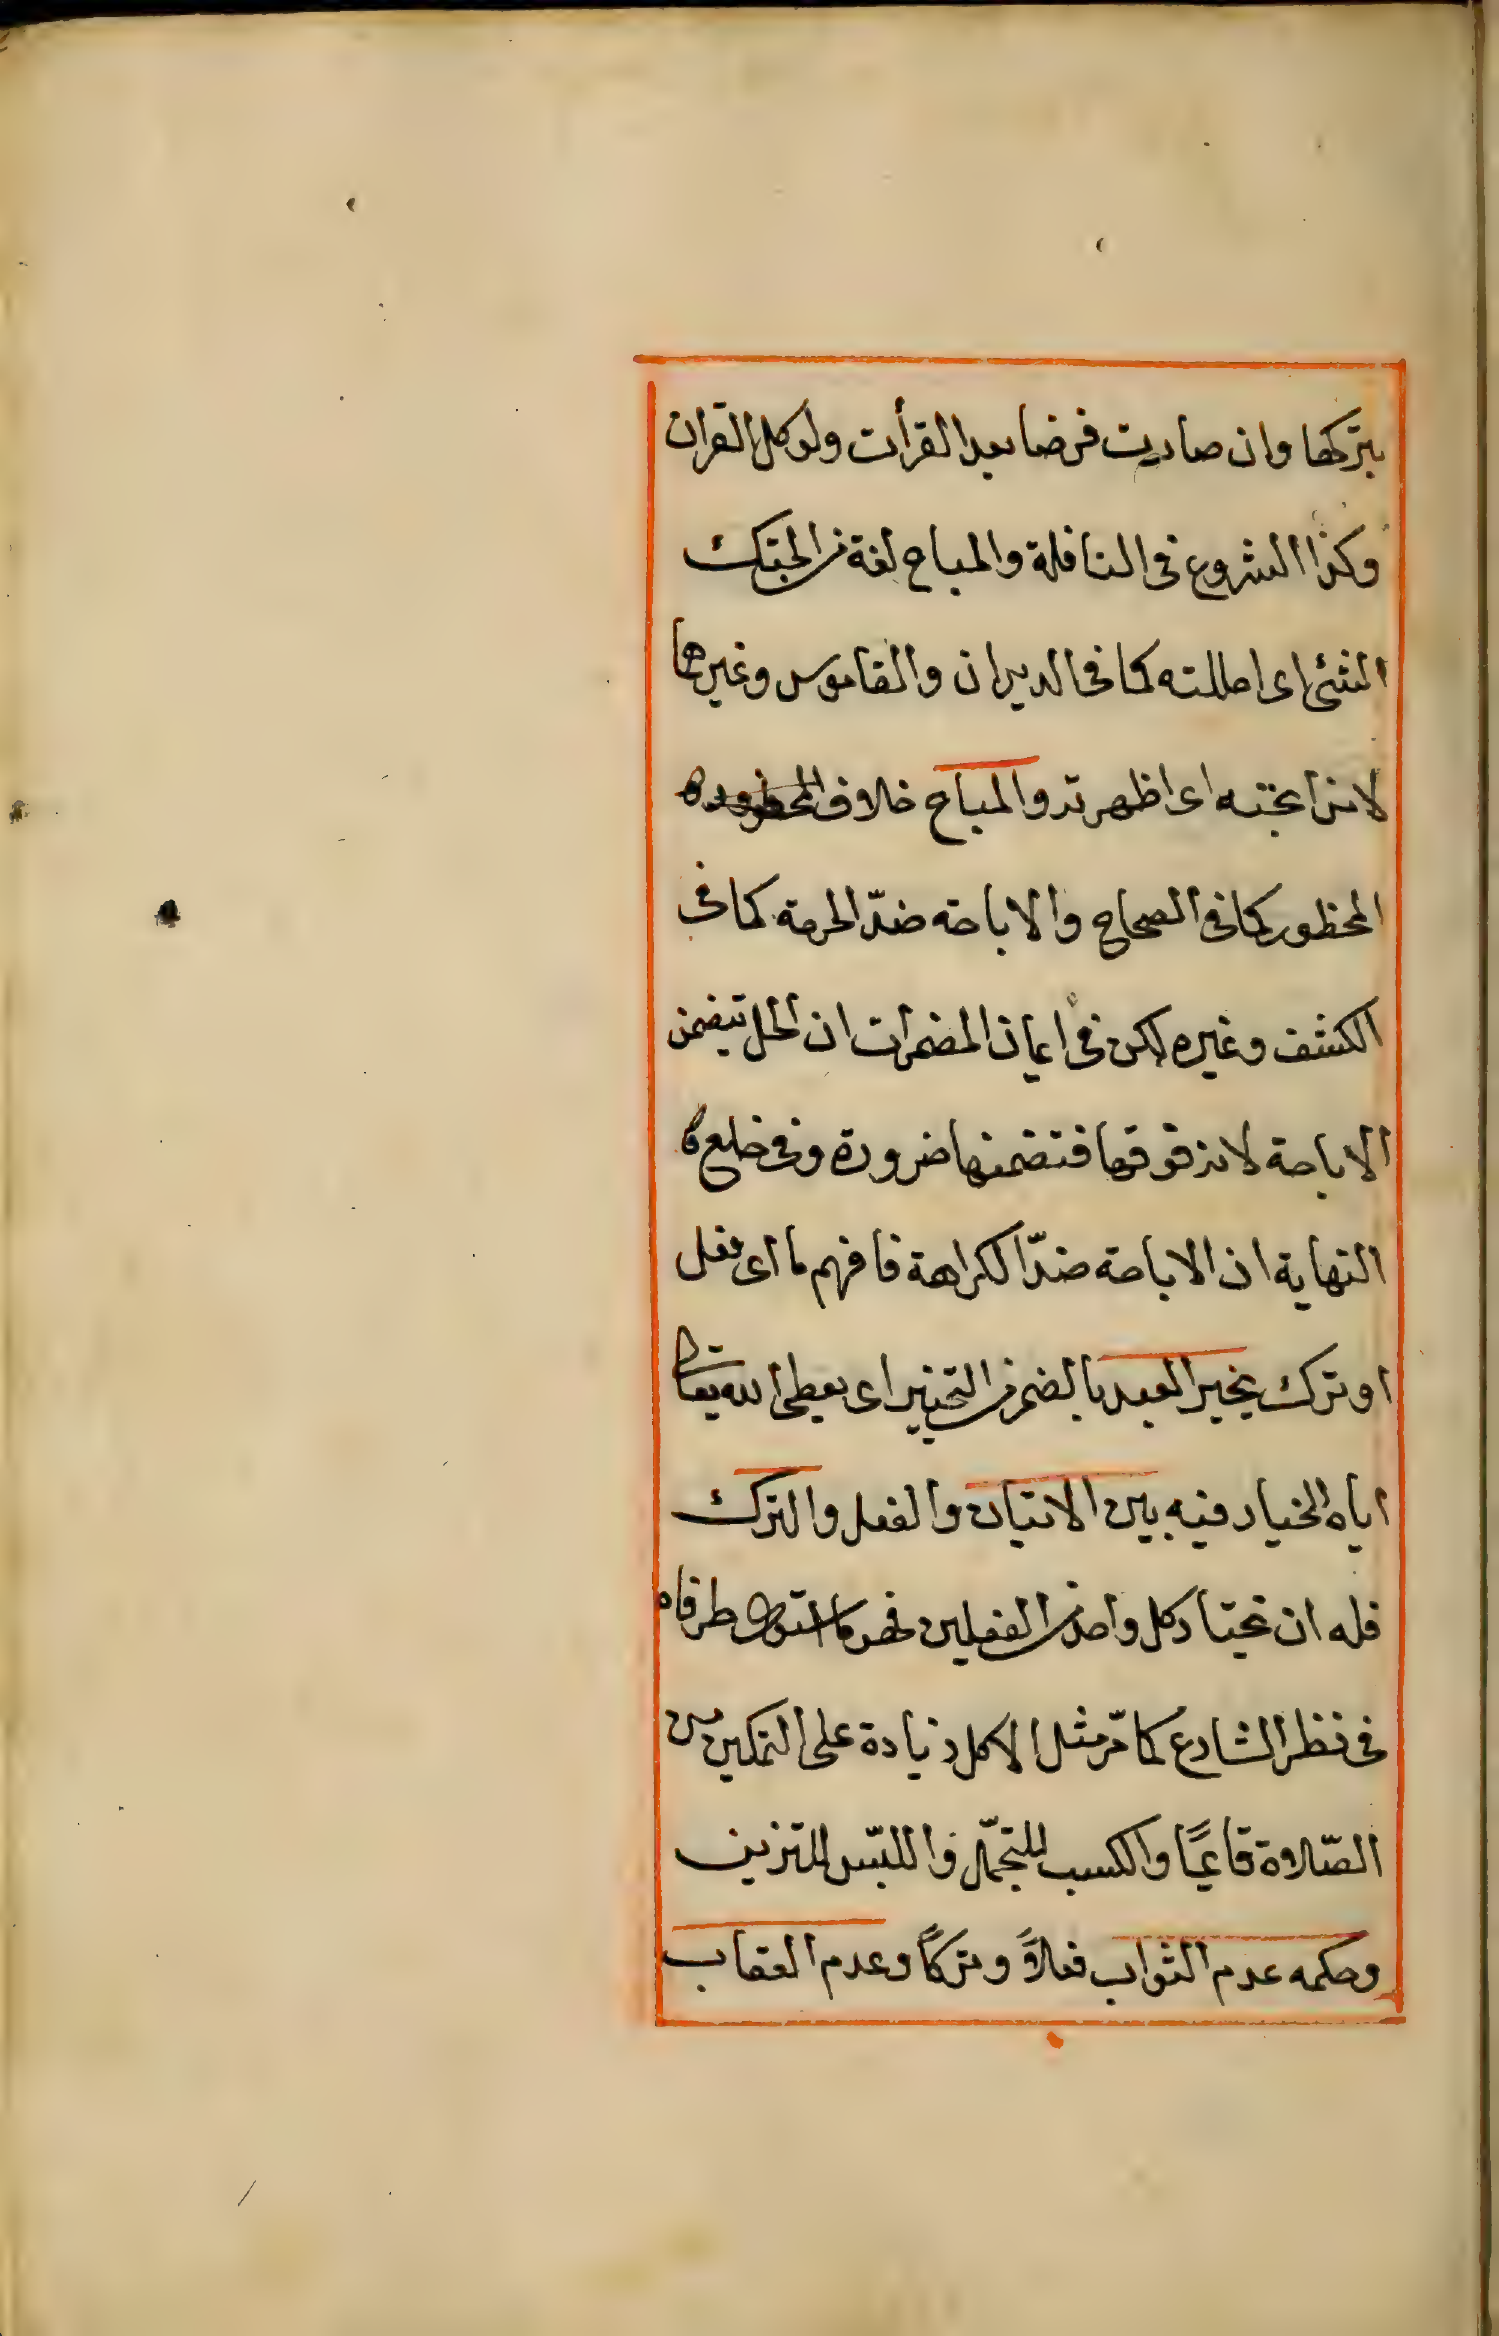 بتركها وان صارت فرضا بعد القرأت ولو كل القران
وكذا الشروع فى النافلة والمباح لغة من ابحتك
الشئ اى احللته كما فى الديوان والقاموس وغيرهما
لا من ابحته اى اظهرته والمباح خلاف
المحظور كما فى الصحاح والاباحة ضدّ الحرمة كما فى
الكشف وغيره لكن فى ايمان المضمرات ان الحل تيضمن
الاباحة لانه فوقها فتضمنها ضرورة وفى خلع
النهاية ان الاباحة ضدّ الكراهة فافهم ما اى فعل
او ترك يخير العبد بالضم من التخيير اى يعطى الله تعالى
اياه الخيار فيه بين الاتيان والفعل والترك
فله ان يختار كل واحد من الفعلين فهو ما استوى طرفاه
فى نظر الشارع كما مّر مثل الاكل زيادة على التمكين من
الصّلاوة قائمًا والكسب للتجمّل واللبّس للتزين
وحكمه عدم الثواب فعلاً وتركاً وعدم العقاب